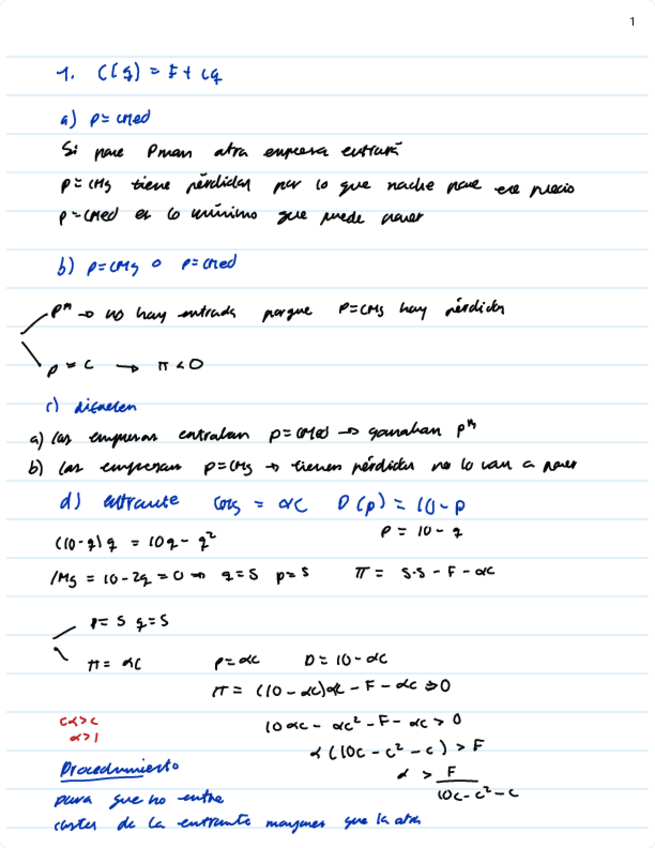 1
1. C(q) = F + cq
a) p = cmed
Si pone Pmon otra empresa entrará
p = cMg tiene pérdidas por lo que nadie pone ese precio
p = cMed es lo mínimo que puede poner
b) p = cMg o p = cmed
pᵐ → no hay entrada porque p = cMg hay pérdidas
p = c → π < 0
c) discuten
a) las empresas entraban p = cMed → ganaban pᵐ
b) las empresas p = cMg → tienen pérdidas no lo van a poner
d) entrante = αc D(p) = 10 - p
(10 - q) q = 10q - q² p = 10 - q
IMg = 10 - 2q = 0 → q = 5 p = 5 π = 5·5 - F - αc
p = 5 q = 5
π = αc p = αc D = 10 - αc
π = (10 - αc)α - F - αc ≥ 0
cα > c 10αc - αc² - F - αc > 0
α > 1 α (10c - c² - c) > F
Procedimiento α > F / 10c - c² - c
para que no entre
costes de la entrante mayores que la otra